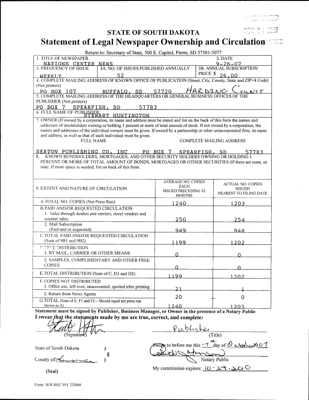 STATE OF SOUTH DAKOTA
Statement of Legal Newspaper Ownership and Circulation
Return to: Secretary of State, 500 E. Capitol, Pierre, SD 57501-5077
1. TITLE OF NEWSPAPER
2. DATE
NATIONS CENTER NEWS
9-26-07
3. FREQUENCY OF ISSUE
3A. NO. OF ISSUES PUBLISHED ANNUALLY
3B. ANNUAL SUBSCRIPTION
PRICE $ 26.00
WEEKLY
52
4. COMPLETE MAILING ADDRESS OF KNOWN OFFICE OF PUBLICATION (Street, City, County, State and ZIP+4 Code)
(Not printers)
PO BOX 107 BUFFALO, SD 57720 HARDING COUNTY
5. COMPLETE MAILING ADDRESS OF THE HEADQUARTERS OR GENERAL BUSINESS OFFICE OF THE
PUBLISHER (Not printers)
PO BOX 7 SPEARFISH, SD 57783
6. FULL NAME OF PUBLISHER
STEWART HUNTINGTON
7. OWNER (If owned by a corporation, its name and address must be stated and list on the back of this form the names and
addresses of stockholders owning or holding 1 percent or more of total amount of stock. If not owned by a corporation, the
names and addresses of the individual owners must be given. If owned by a partnership or other unincorporated firm, its name
and address, as well as that of each individual must be given.)
FULL NAME
COMPLETE MAILING ADDRESS
SEATON PUBLISHING CO, INC PO BOX 7 SPEARFISH, SD 57783
8. KNOWN BONDHOLDERS, MORTGAGES, AND OTHER SECURITY HOLDERS OWNING OR HOLDING 1
PERCENT OR MORE OF TOTAL AMOUNT OF BONDS, MORTGAGES OR OTHER SECURITIES (If there are none, so
state. If more space is needed, list on back of this form.
9. EXTENT AND NATURE OF CIRCULATION
AVERAGE NO. COPIES
EACH
ISSUED PRECEDING 12
MONTHS
ACTUAL NO. COPIES
ISSUED
NEAREST TO FILING DATE
A.TOTAL NO. COPIES (Net Press Run)
1240
1203
B.PAID AND/OR REQUESTED CIRCULATION
1. Sales through dealers and carriers, street vendors and
counter sales.
250
254
2. Mail Subscription
(Paid and or requested)
949
948
C.TOTAL PAID AND/OR REQUESTED CIRCULATION
(Sum of 9B1 and 9B2)
1199
1202
DISTRIBUTION
1. BY MAIL, CARRIER OR OTHER MEANS
0
0
2. SAMPLES, COMPLIMENTARY AND OTHER FREE
COPIES
0
0
E.TOTAL DISTRIBUTION (Sum of C, D1 and D2)
1199
1202
F. COPIES NOT DISTRIBUTED
1. Office use, left over, unaccounted, spoiled after printing
21
1
2. Return from News Agents
20
0
G.TOTAL (Sum of E, F1 and F2 – Should equal net press run
shown in A)
1240
1203
Statement must be signed by Publisher, Business Manager, or Owner in the presence of a Notary Public
I swear that the statements made by me are true, correct, and complete:
Publisher
(Signature)
(Title)
State of South Dakota )
) §
County of )
to before me this day of
Notary Public
(Seal)
My commission expires:
Form: SOS REC 051 7/2004